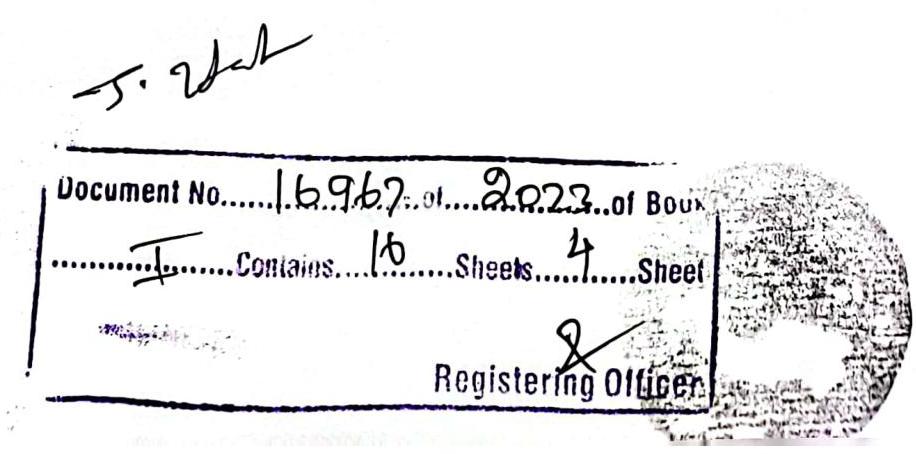 Document No......16967..of....2023..of Book
..........I.......Contains....16........Sheets.....4.....Sheet
Registering Officer